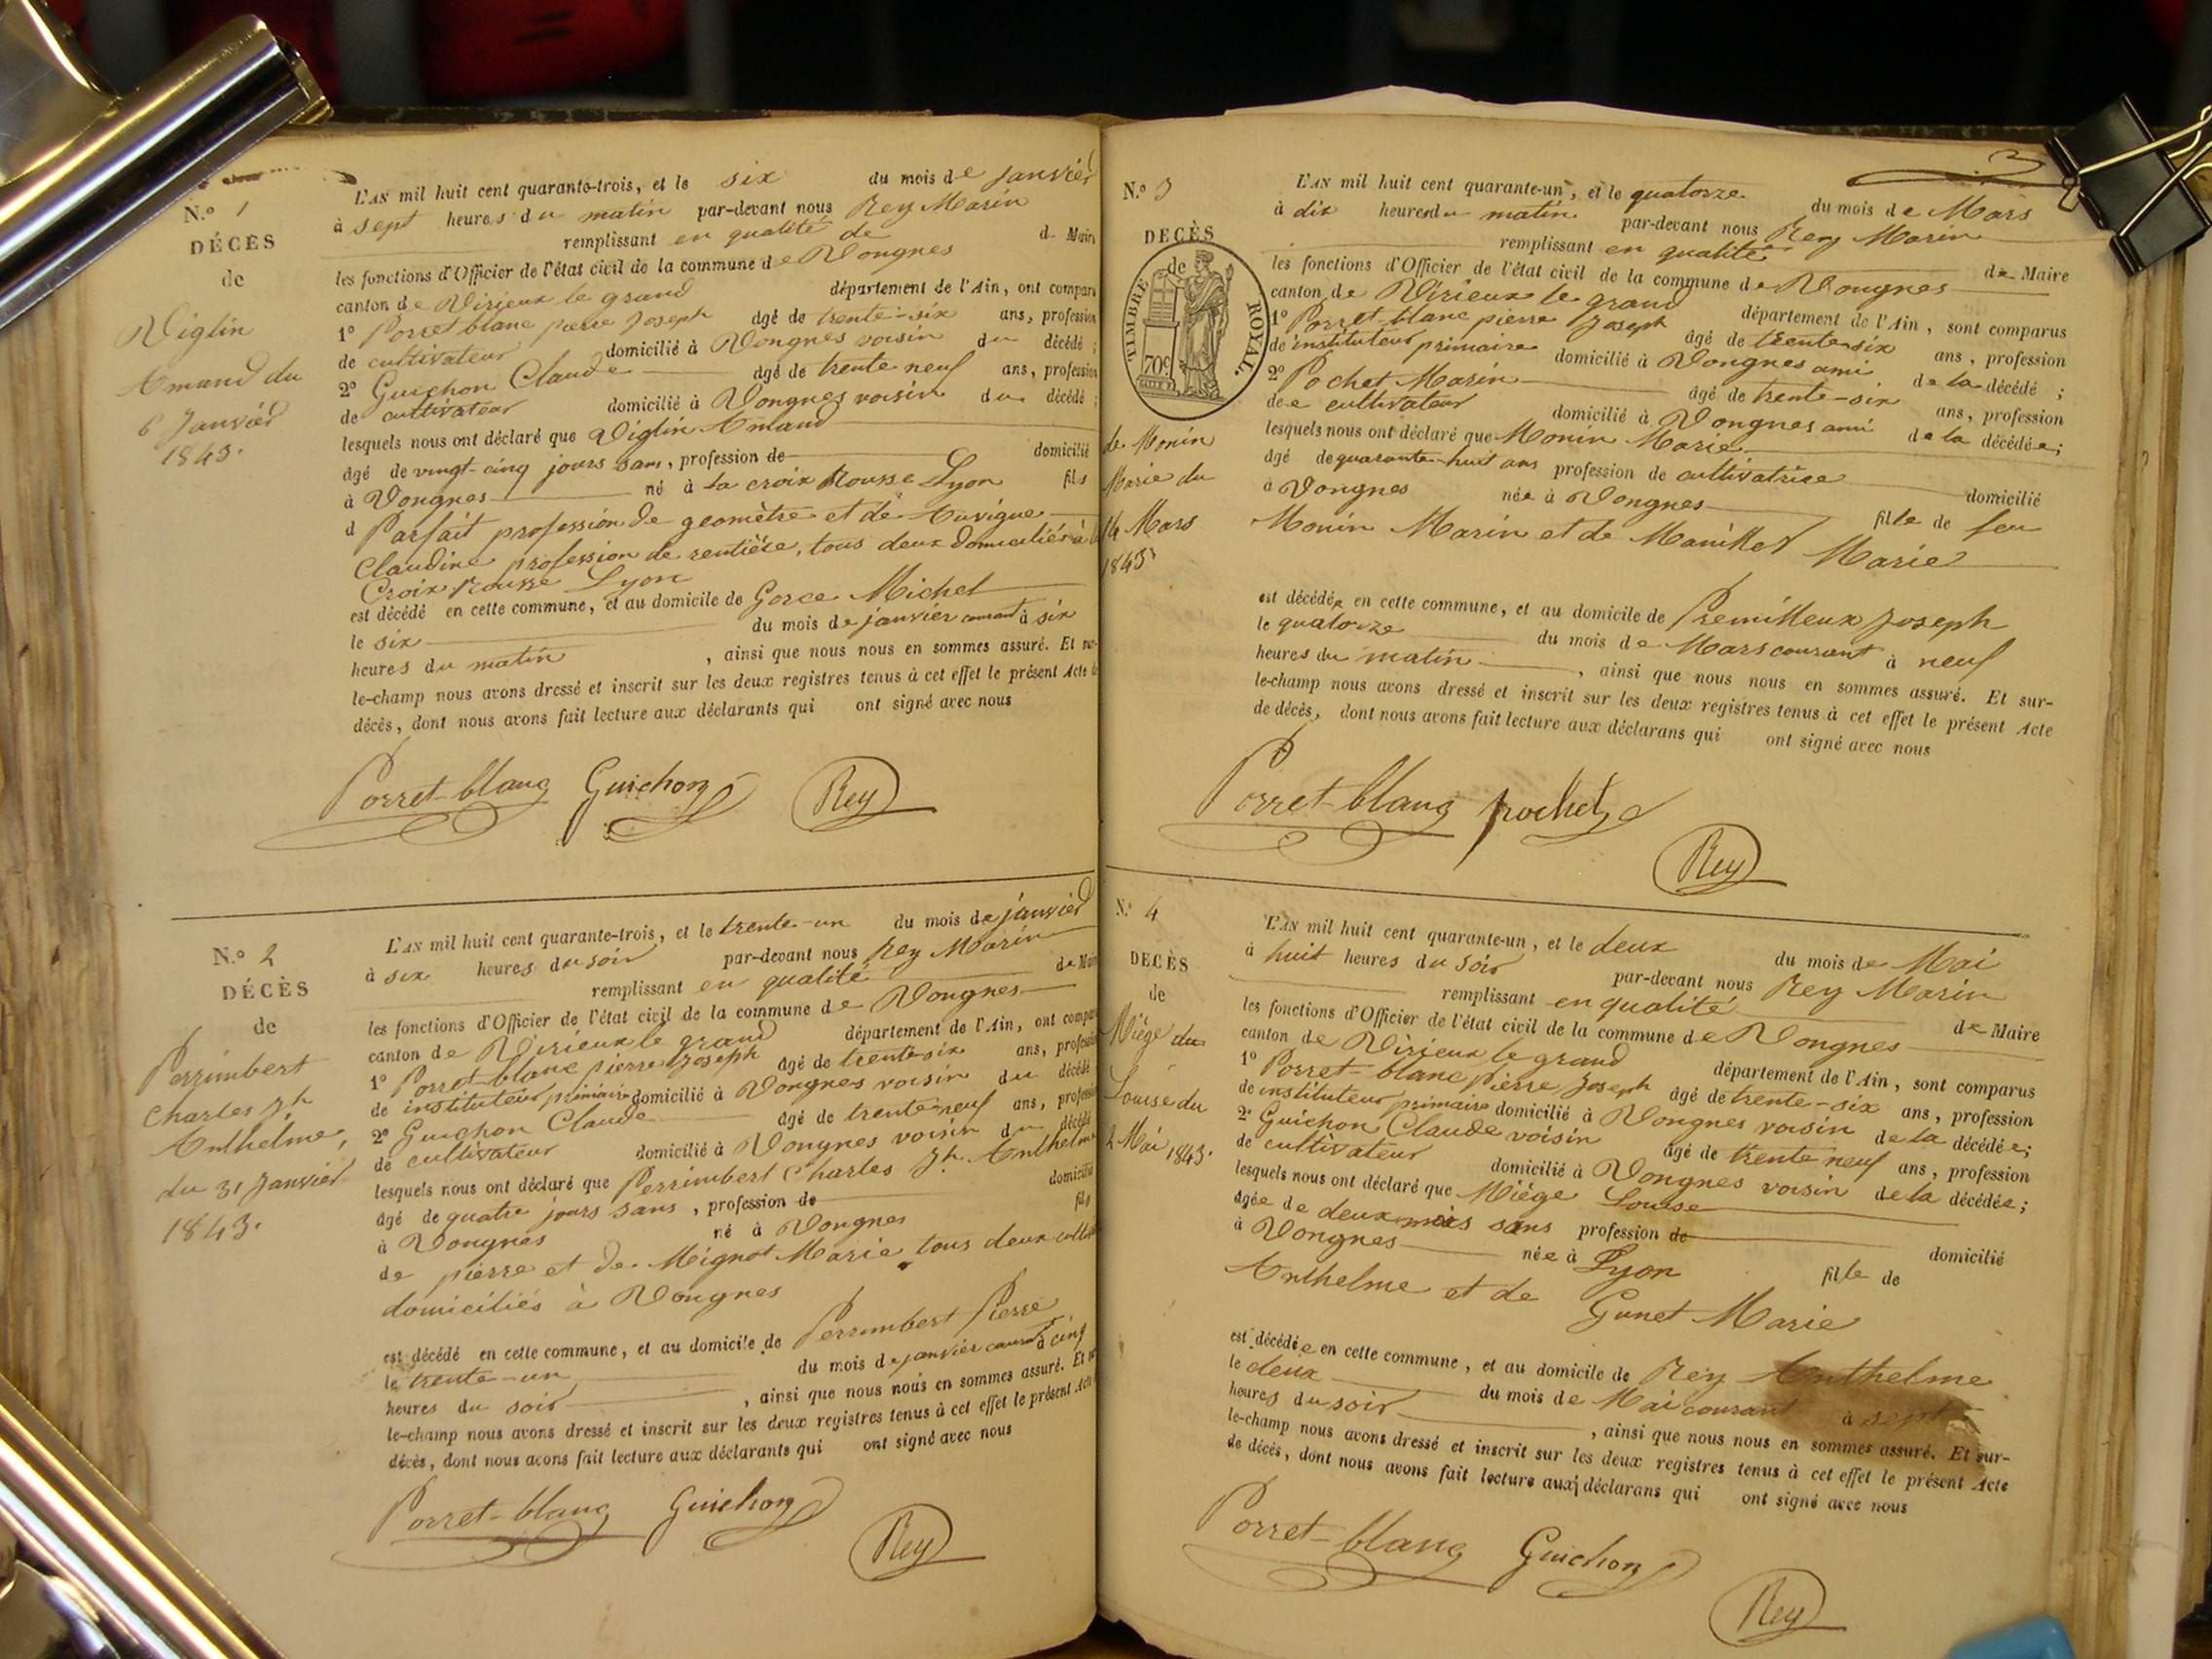 N.º 1
DÉCÈS
de
Viglin
Amand du
6 Janvier
1843.
L'AN mil huit cent quarante-trois, et le six du mois de janvier
à sept heures du matin par-devant nous Rey Marin
remplissant en qualité de d Maire
les fonctions d'Officier de l'état civil de la commune de Vongnes
canton de Virieux le grand département de l'Ain, ont comparu
1º Porret-blanc pierre Joseph âgé de trente-six ans, profession
de cultivateur domicilié à Vongnes voisin du décédé ;
2º Guichon Claude âgé de trente neuf ans, profession
de cultivateur domicilié à Vongnes voisin du décédé ;
lesquels nous ont déclaré que Viglin Amand
âgé de vingt-cinq jours sans, profession de domicilié
à Vongnes né à la croix Rousse Lyon fils
d Parfait profession de geomètre et de Auvigue
Claudine profession de rentière, tous deux domiciliés à la
Croix rousse Lyon
est décédé en cette commune, et au domicile de Gorce Michel
le six du mois de janvier courant à six
heures du matin , ainsi que nous nous en sommes assuré. Et sur-
le-champ nous avons dressé et inscrit sur les deux registres tenus à cet effet le présent Acte de
décès, dont nous avons fait lecture aux déclarants qui ont signé avec nous
Porret-blanc Guichon Rey
N.º 2
DÉCÈS
de
Perrimbert
Charles Jh
Anthelme,
du 31 Janvier
1843.
L'AN mil huit cent quarante-trois, et le trente-un du mois de janvier
à six heures du soir par-devant nous Rey Marin
remplissant en qualité de Maire
les fonctions d'Officier de l'état civil de la commune de Vongnes
canton de Virieux le grand département de l'Ain, ont comparu
1º Porret-blanc pierre Joseph âgé de trente-six ans, profession
de instituteur primaire domicilié à Vongnes voisin du décédé
2º Guichon Claude âgé de trente neuf ans, profession
de cultivateur domicilié à Vongnes voisin du décédé
lesquels nous ont déclaré que Perrimbert Charles Jh Anthelme
âgé de quatre jours sans , profession de domicilié
à Vongnes né à Vongnes fils
de pierre et de Mignot Marie tous deux
domiciliés à Vongnes
est décédé en cette commune, et au domicile de Perrimbert Pierre
le trente-un du mois de janvier courant à cinq
heures du soir , ainsi que nous nous en sommes assuré. Et sur-
le-champ nous avons dressé et inscrit sur les deux registres tenus à cet effet le présent Acte
décès, dont nous avons fait lecture aux déclarants qui ont signé avec nous
Porret-blanc Guichon Rey
3
N.º 3
DECÈS
de
TIMBRE ROYAL.
70c
de Monin
Marie du
14 Mars
1843
L'AN mil huit cent quarante-un, et le quatorze du mois de Mars
à dix heures du matin par-devant nous Rey Marin
remplissant en qualité de Maire
les fonctions d'Officier de l'état civil de la commune de Vongnes
canton de Virieux le grand département de l'Ain, sont comparus
1º Porret-blanc pierre Joseph âgé de trente-six ans, profession
de instituteur primaire domicilié à Vongnes ami de la décédé ;
2º Pochet Marin âgé de trente-six ans, profession
de cultivateur domicilié à Vongnes ami de la décédée ;
lesquels nous ont déclaré que Monin Marie
âgé de quarante-huit ans profession de cultivatrice domicilié
à Vongnes née à Vongnes fille de feu
Monin Marin et de Manillet Marie
est décédée en cette commune, et au domicile de Premilleux Joseph
le quatorze du mois de Mars courant à neuf
heures du matin , ainsi que nous nous en sommes assuré. Et sur-
le-champ nous avons dressé et inscrit sur les deux registres tenus à cet effet le présent Acte
de décès, dont nous avons fait lecture aux déclarans qui ont signé avec nous
Porret-blanc pochet
Rey
N.º 4
DECÈS
de
Miège du
Louise du
2 Mai 1843.
L'AN mil huit cent quarante-un, et le deux du mois de Mai
à huit heures du soir par-devant nous Rey Marin
remplissant en qualité de Maire
les fonctions d'Officier de l'état civil de la commune de Vongnes
canton de Virieux le grand département de l'Ain, sont comparus
1º Porret-blanc pierre Joseph âgé de trente-six ans, profession
de instituteur primaire domicilié à Vongnes voisin de la décédée ;
2º Guichon Claude voisin âgé de trente neuf ans, profession
de cultivateur domicilié à Vongnes voisin de la décédée ;
lesquels nous ont déclaré que Miège Louise
âgée de deux mois sans profession de domicilié
à Vongnes née à Lyon fille de
Anthelme et de Gunet Marie
est décédée en cette commune, et au domicile de Rey Anthelme
le deux du mois de Mai courant à sept
heures du soir , ainsi que nous nous en sommes assuré. Et sur-
le-champ nous avons dressé et inscrit sur les deux registres tenus à cet effet le présent Acte
de décès, dont nous avons fait lecture aux déclarans qui ont signé avec nous
Porret-blanc Guichon
Rey